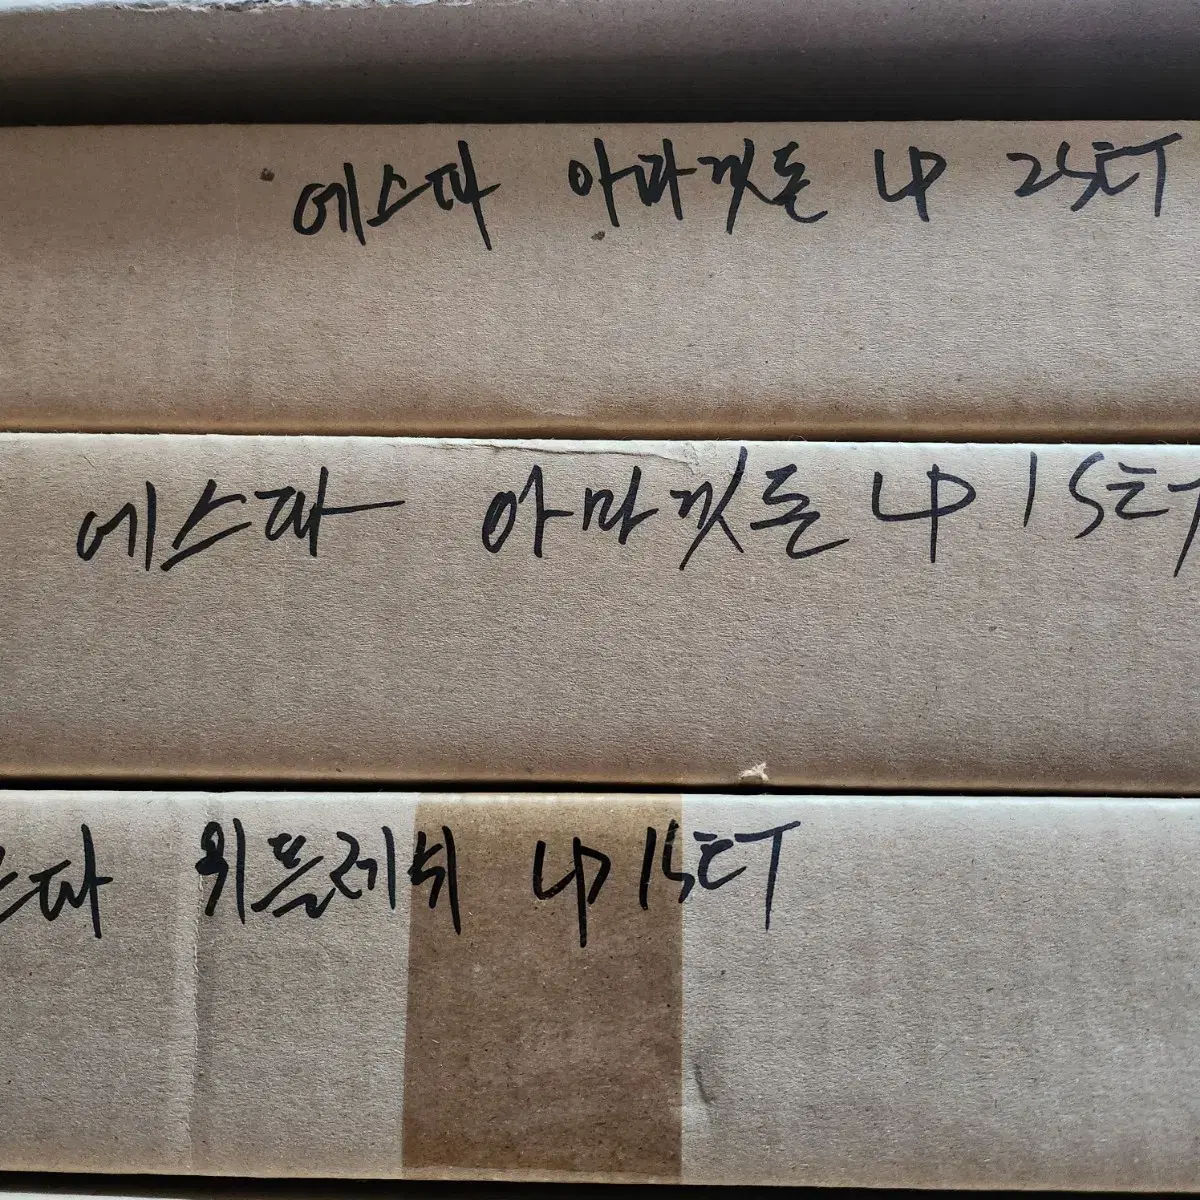 에스파 아마겟돈 LP 2SET
에스파 아마겟돈 LP 1SET
스파 위플레쉬 LP 1SET